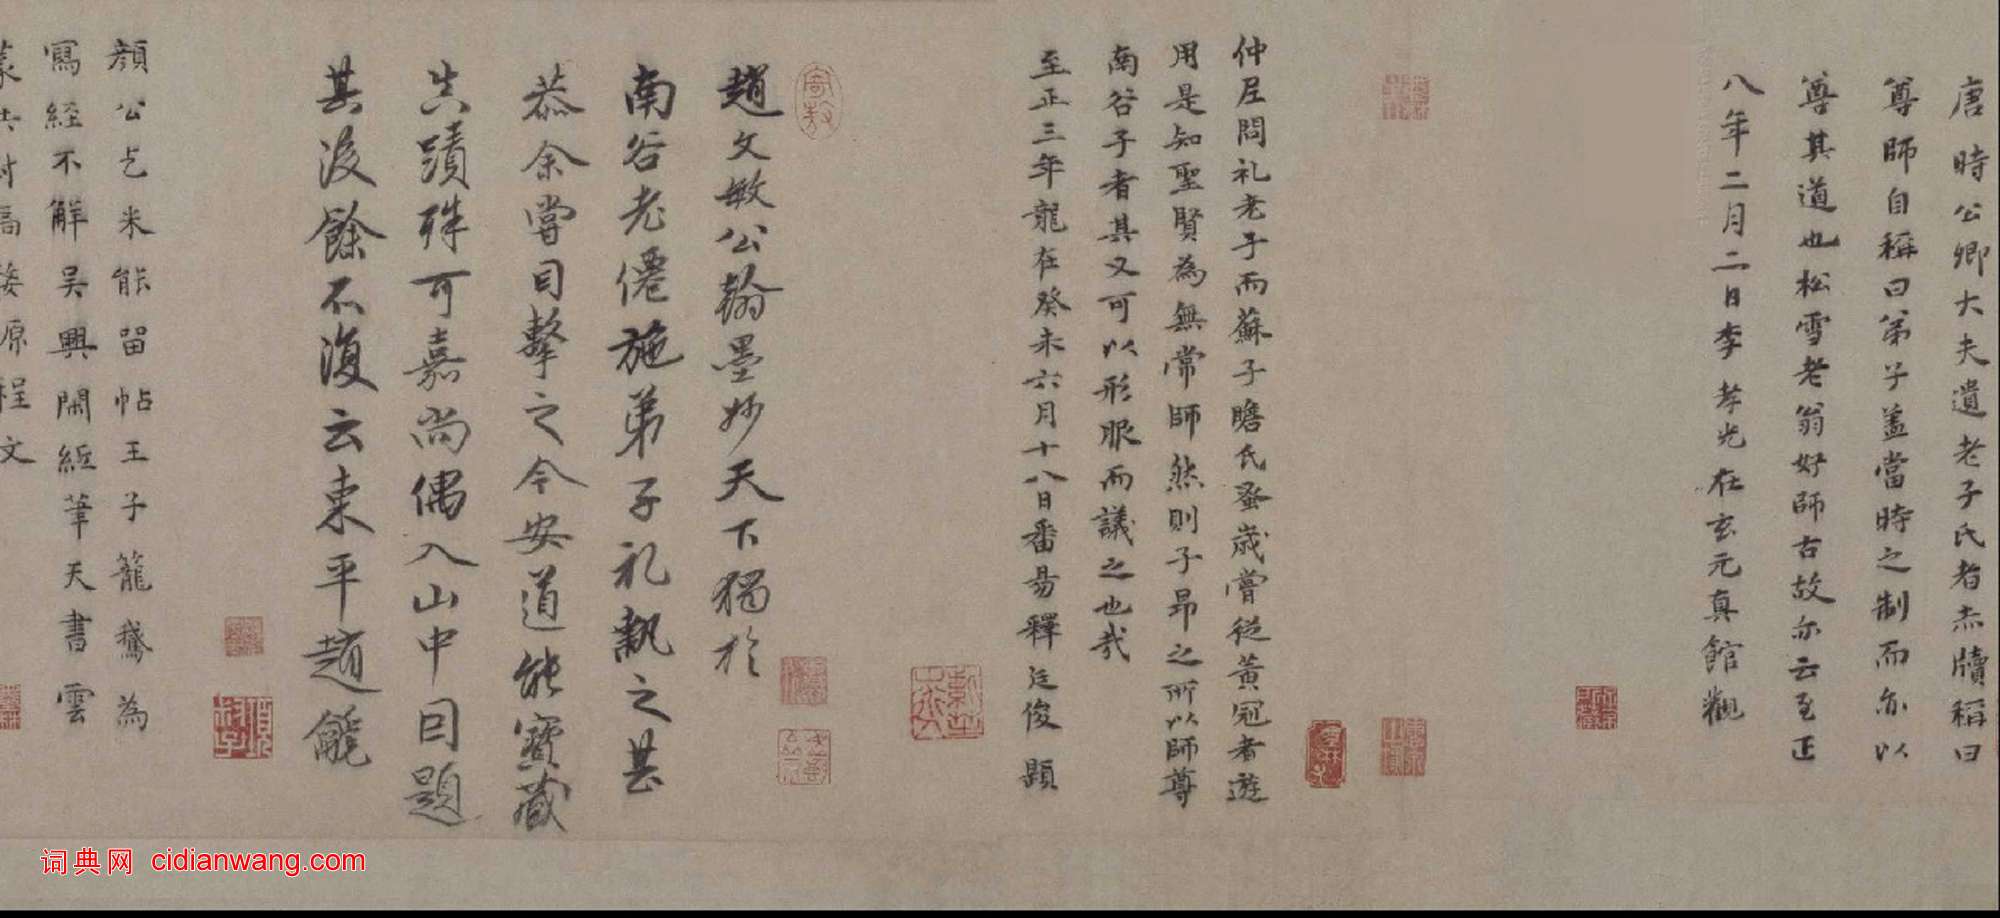 唐時公卿大夫遺老子氏者杰牘稱曰
尊師自稱曰弟子盖當時之制而亦以
尊其道也松雪老翁好師古故亦云至正
八年二月二日李孝光在玄元真館觀
仲尼問礼老子而蘇子瞻氏蚤歳嘗從黃冠者遊
用是知聖賢為無常師然則子昂之所以師尊
南谷子者其又可以形服而議之也哉
至正三年龍在癸未六月十八日番昜釋廷俊題
趙文敏公翰墨妙天下獨於
南谷老僊施弟子礼執之甚
恭余嘗目擊之今安道能寶藏
真蹟殊可嘉尚偶入山中因題
其後餘不復云東平趙箎
顔公乞米能留帖王子籠鵞為
寫經不解吴興閑紙筆天書雲
婺原程文
词典网 cidianwang.com